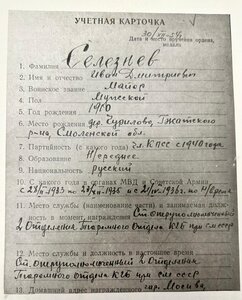 УЧЕТНАЯ КАРТОЧКА
30/VII-54г.
Дата и место вручения ордена,
медали
1. Фамилия Селезнев
2. Имя и отчество Иван Дмитриевич
3. Воинское звание Майор
4. Пол Мужской
5. Год рождения 1910
6. Место рождения дер. Чурилово, Гжатского
р-на, Смоленской обл.
7. Партийность (с какого года) чл. КПСС с 1940 года
8. Образование Среднее
9. Национальность русский
10. С какого года в органах МВД и Советской Армии
11. Место службы (наименование части) и занимаемая дол-
жность в момент награждения Ст. оперуполномоченный
2 Отделения Тюремного отдела КГБ при см ссср
12. Место службы и должность в настоящее время
Ст. Оперуполномоченный 2 Отделения
Тюремного Отдела КГБ при См СССР
13. Домашний адрес награжденного гор. Москва,